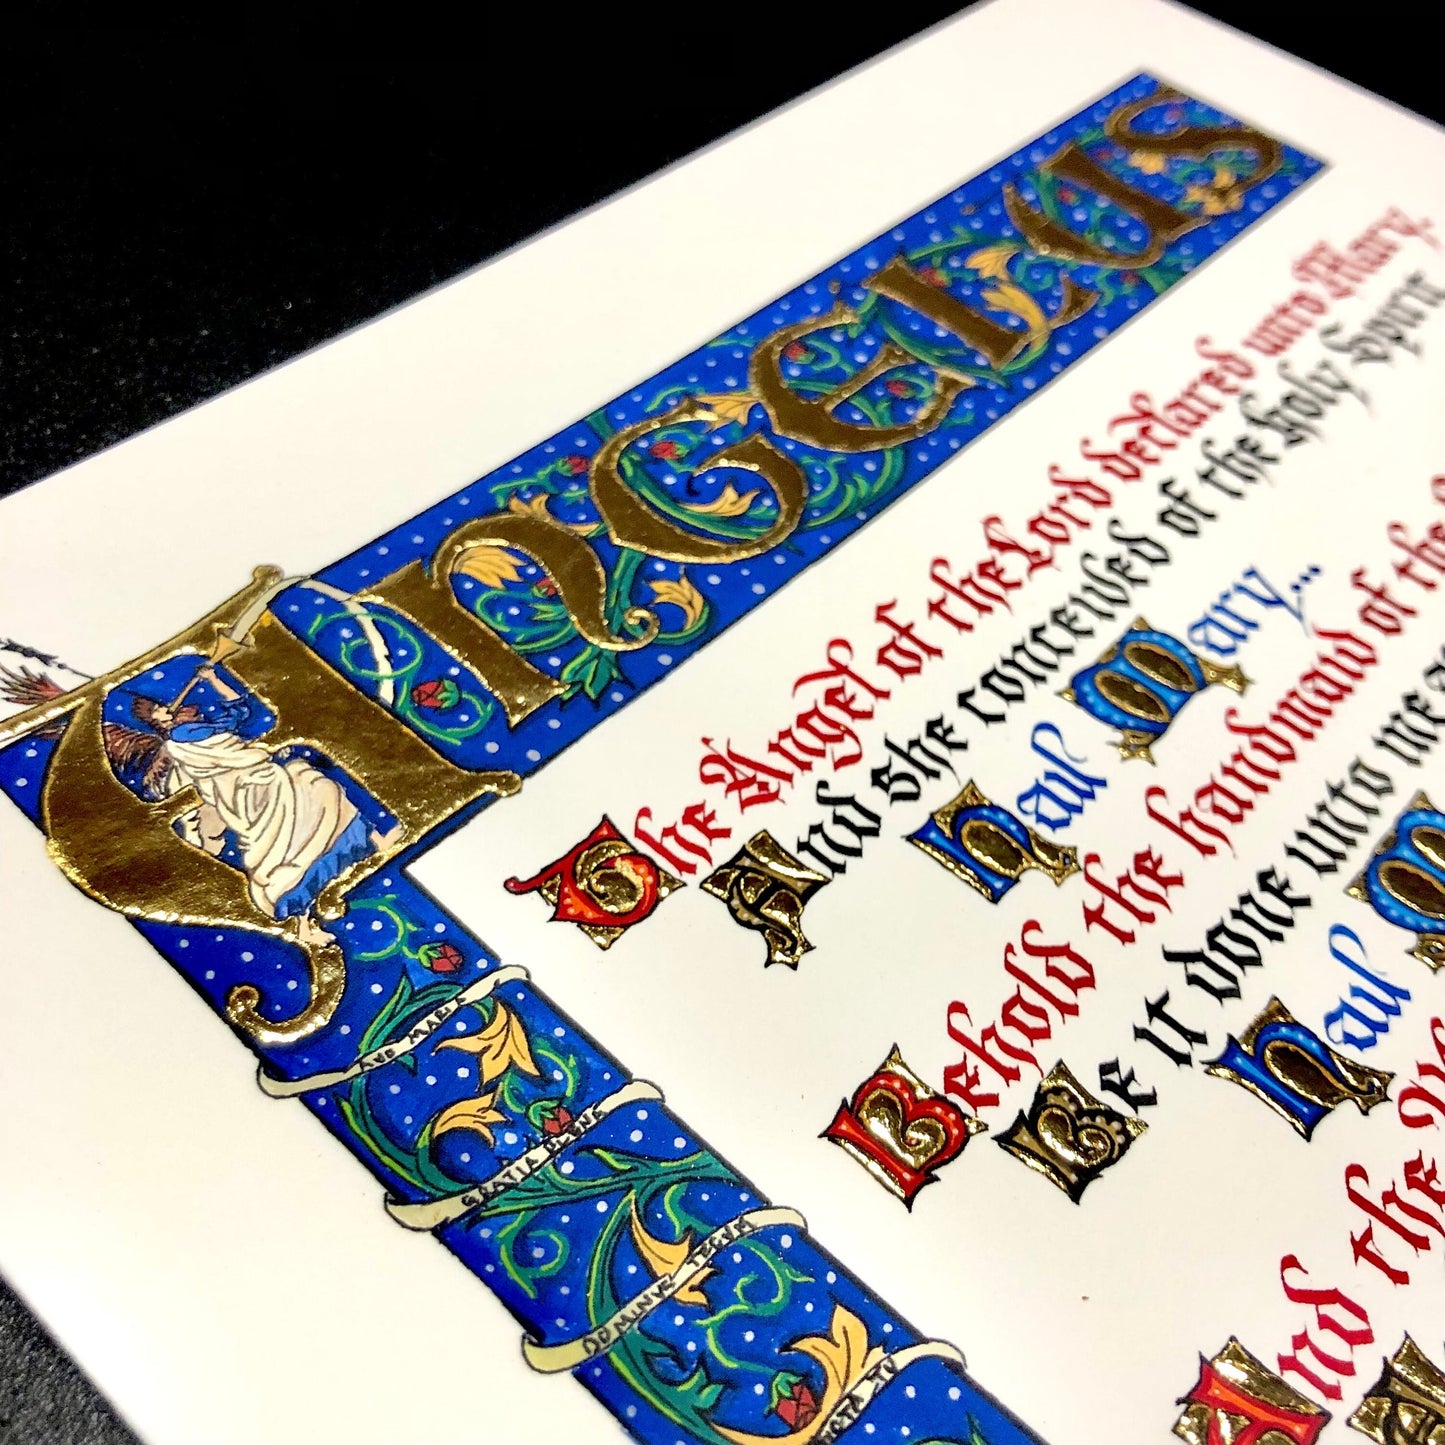 ANGELUS
The Angel of the Lord declared unto Mary.
And she conceived of the Holy Spirit
Hail Mary...
Behold the handmaid of the
Be it done unto me
Hail
And the
AVE MARI
GRATIA PLENA
DOMINVS TECVM
TV